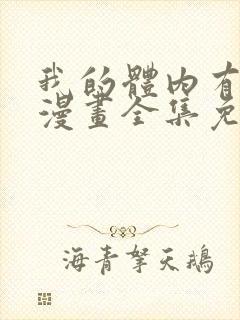 我的體內有
漫畫全集免
海青拏天鵝